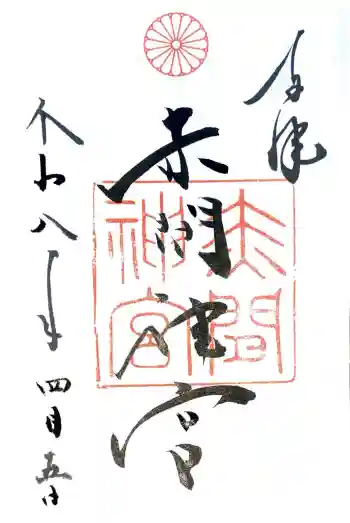 奉拝
赤間神宮
赤間神宮
令和八年四月五日